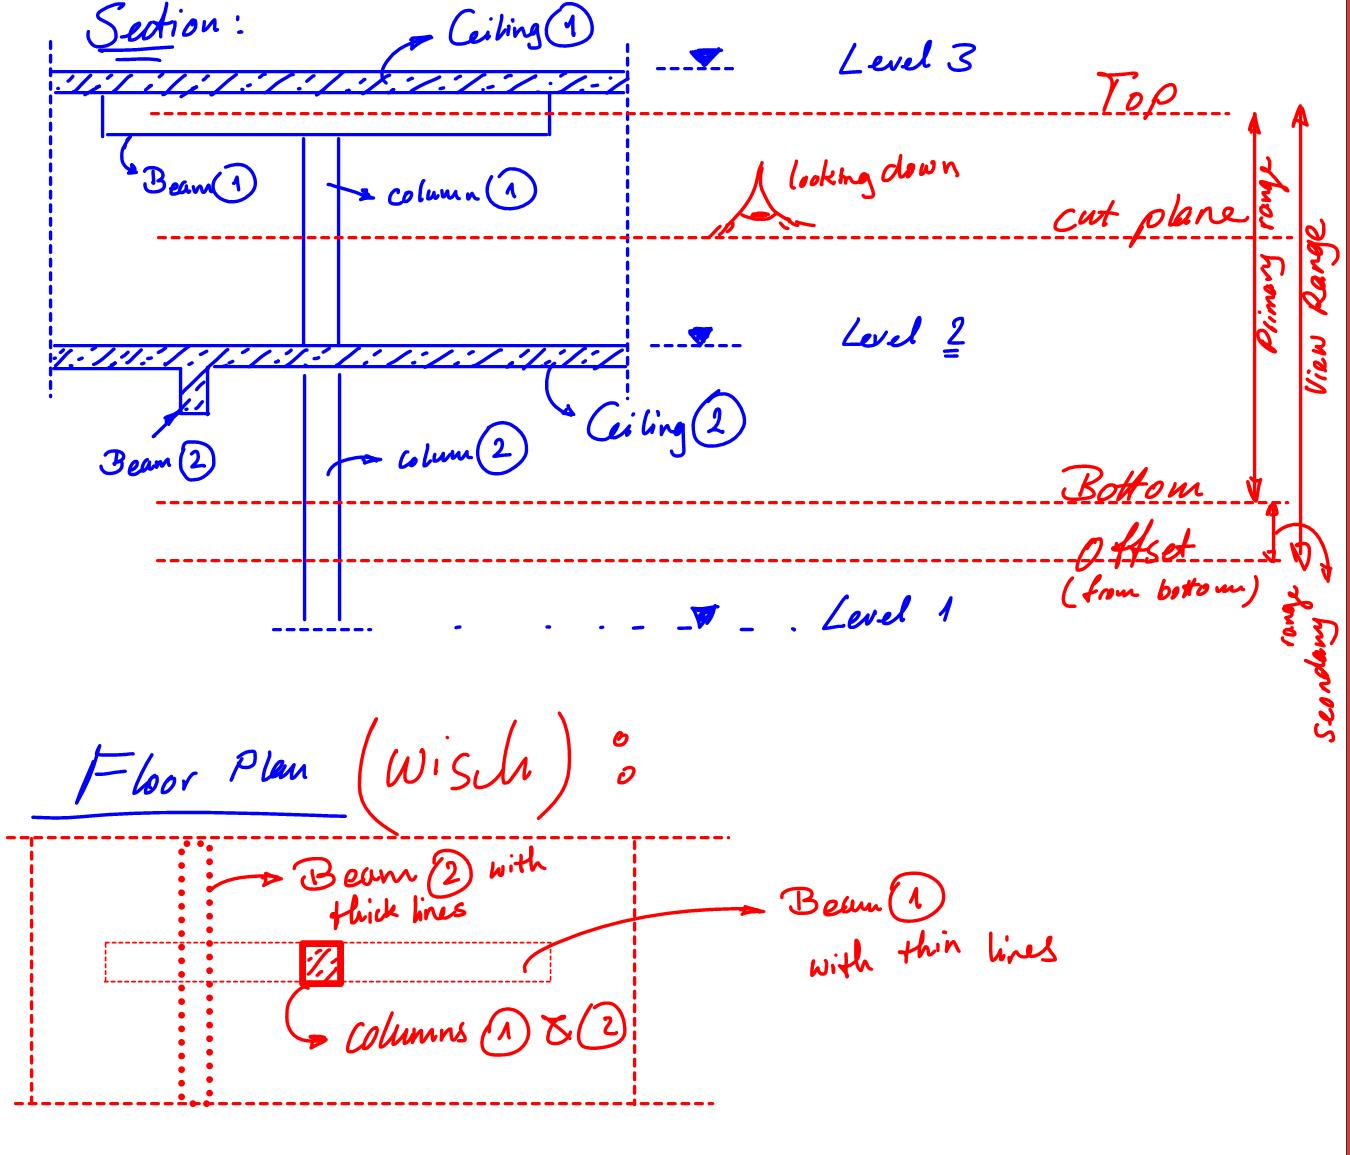 Section:
Ceiling 1
Level 3
Top
Beam 1
column 1
looking down
cut plane
Primary range
View Range
Level 2
Ceiling 2
Beam 2
column 2
Bottom
Offset
(from bottom)
Level 1
range
secondary
Floor Plan (Wisch):
Beam 2 with
thick lines
Beam 1
with thin lines
columns 1 & 2